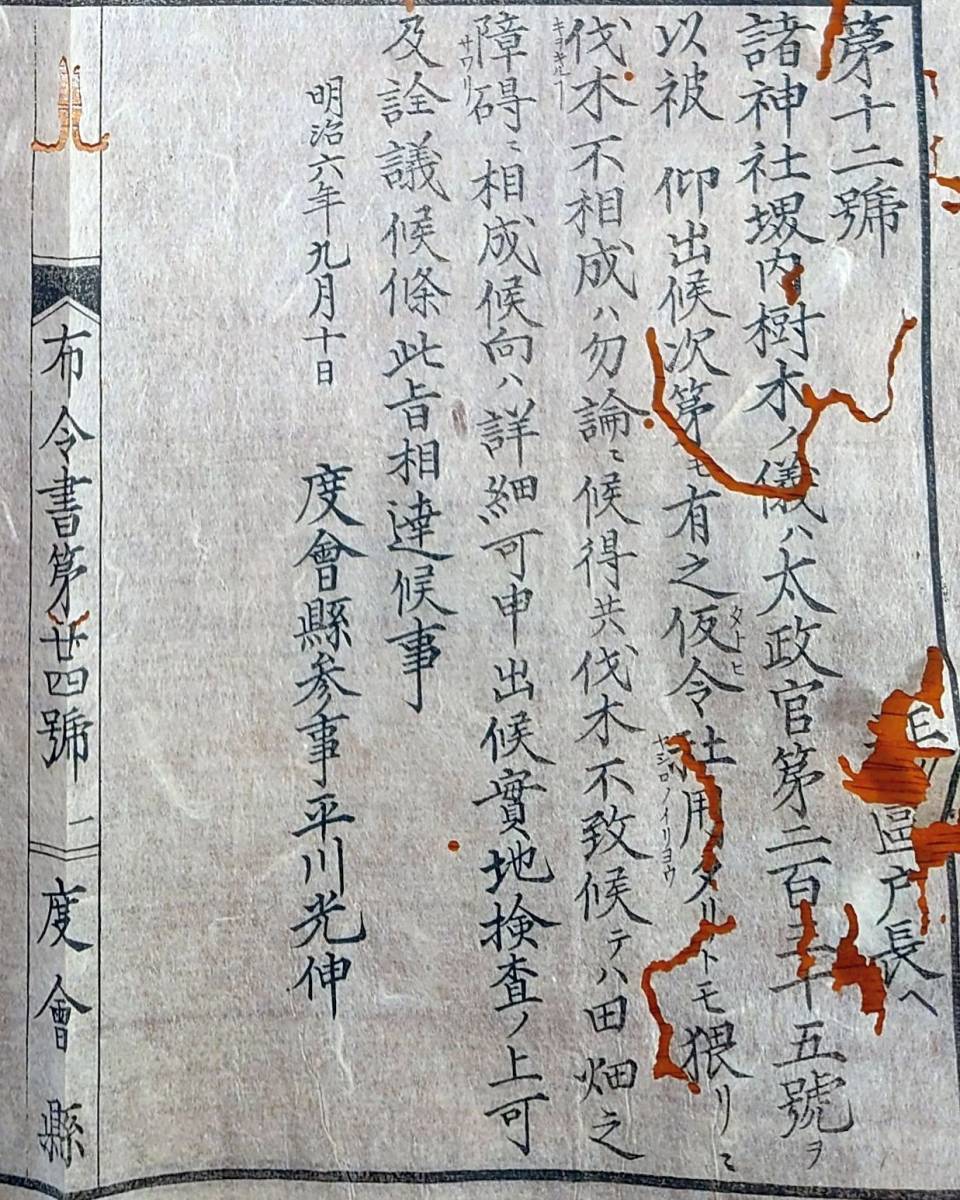 第十二號
區戸長ヘ
諸神社境内樹木ノ儀ハ太政官第二百三十五號ヲ
以被　仰出候次第モ有之仮令社用タルトモ猥リニ
タトヒ
ヤシロノイリヨウ
伐木不相成ハ勿論ニ候得共伐木不致候テハ田畑之
障碍ニ相成候向ハ詳細可申出候實地検査ノ上可
サワリ
及詮議候條此旨相達候事
明治六年九月十日
度會縣参事平川光伸
布令書第廿四號　一　度會縣